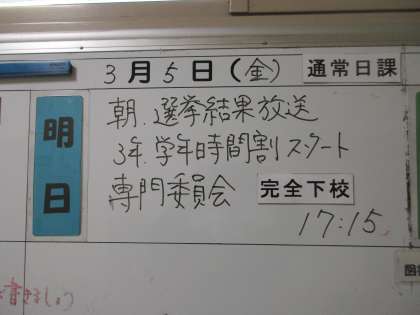 3月5日(金) 通常日課
明日
朝.選挙結果放送
3年.学年時間割スタート
専門委員会 完全下校
17:15
書きましょう